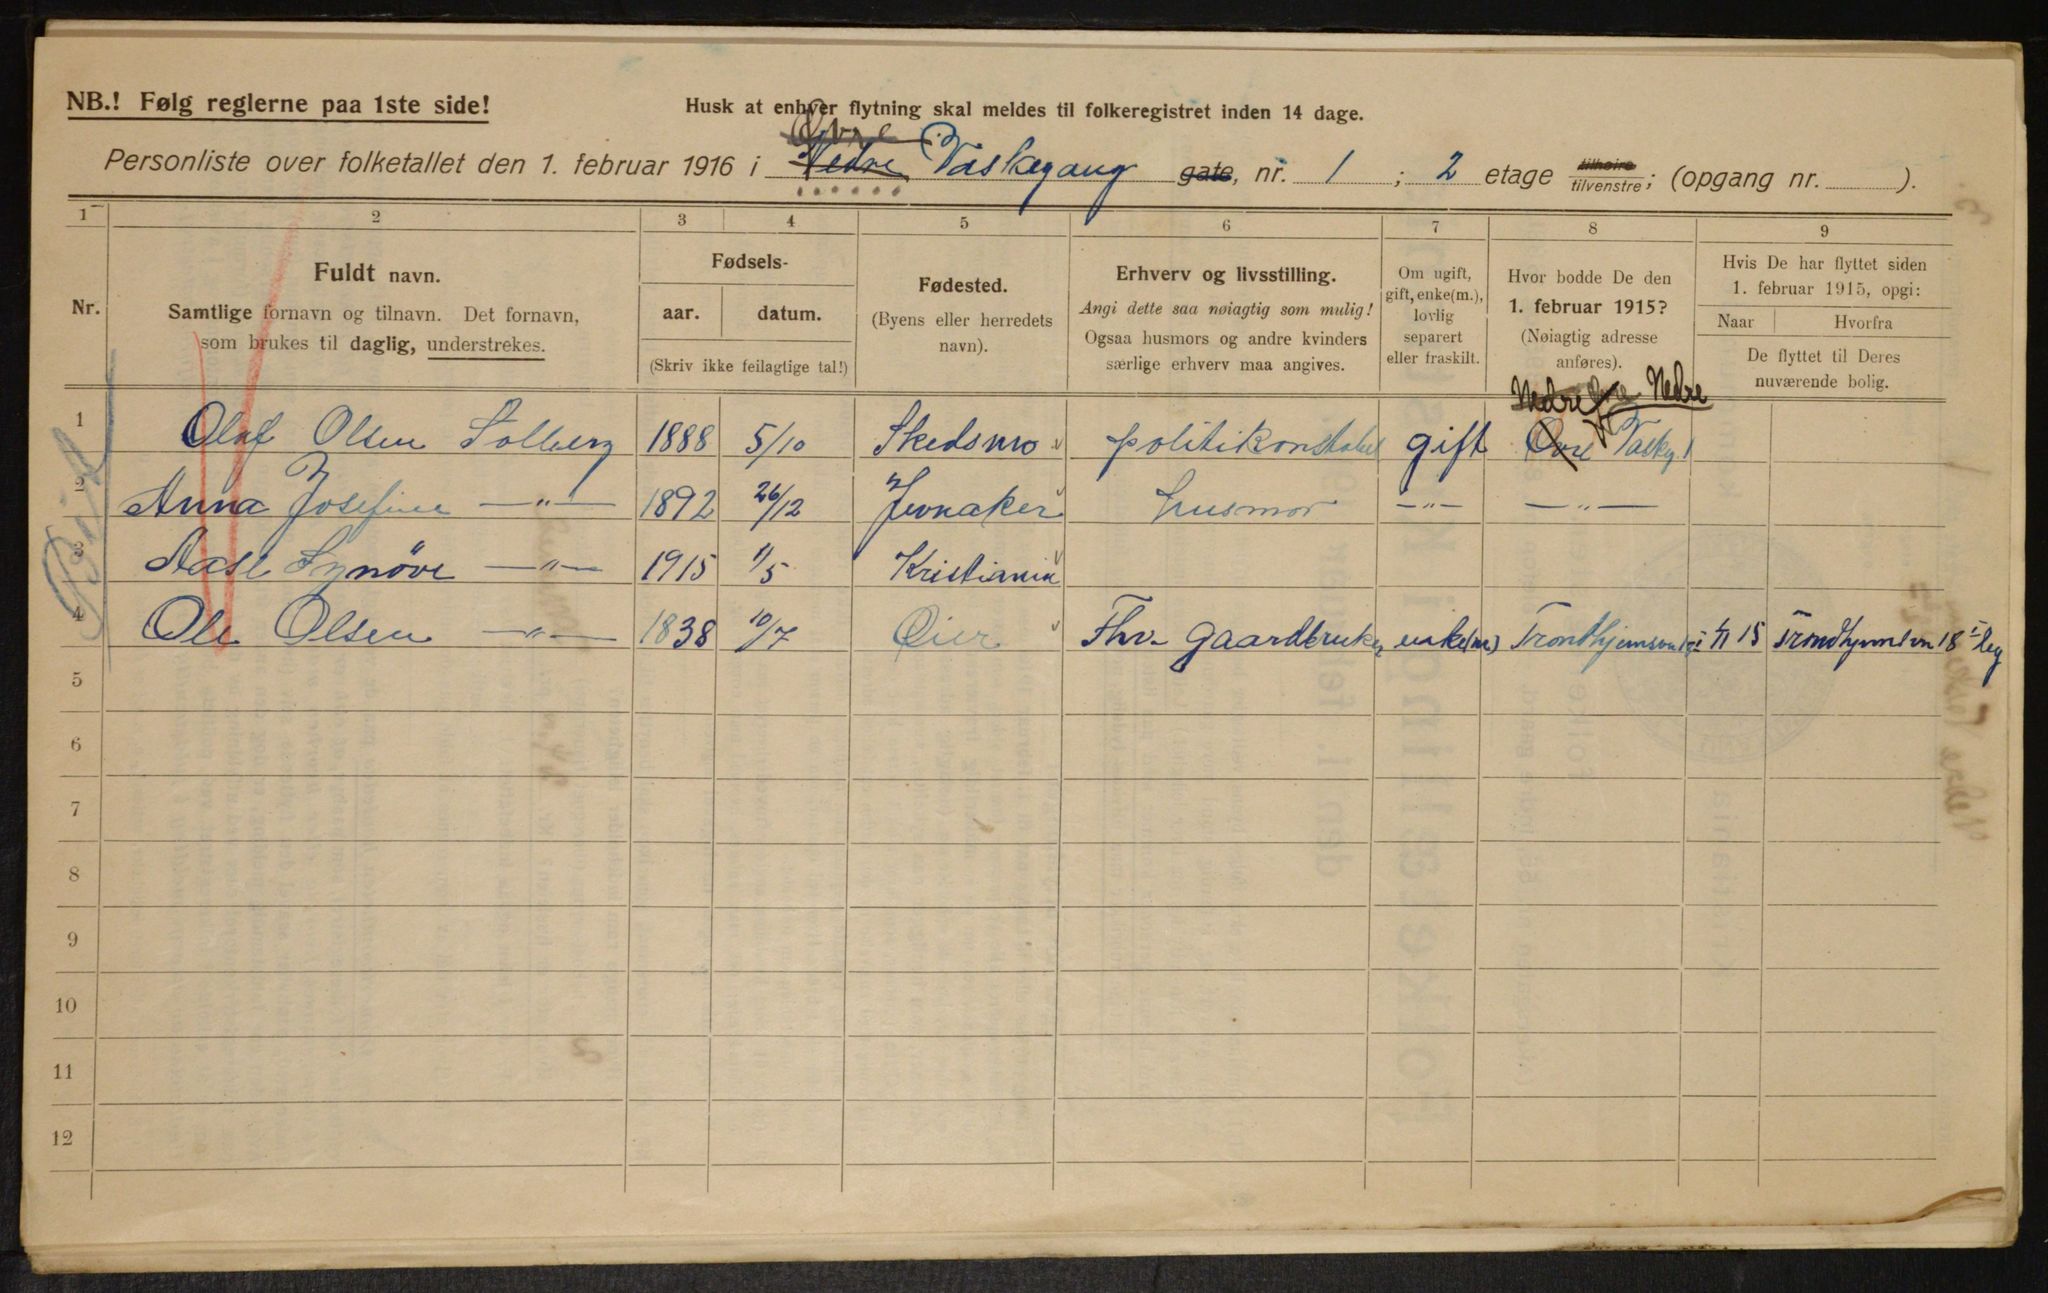 NB.! Følg reglerne paa 1ste side!
Husk at enhver flytning skal meldes til folkeregistret inden 14 dage.
Øvre
Personliste over folketallet den 1. februar 1916 i Nedre Vaskegang gate, nr. 1 ; 2 etage tilhøire tilvenstre; (opgang nr. ).
1 2 3 4 5 6 7 8 9
Nr.
Fuldt navn.
Samtlige fornavn og tilnavn. Det fornavn,
som brukes til daglig, understrekes.
Fødsels-
aar. datum.
(Skriv ikke feilagtige tal!)
Fødested.
(Byens eller herredets
navn).
Erhverv og livsstilling.
Angi dette saa nøiagtig som mulig!
Ogsaa husmors og andre kvinders
særlige erhverv maa angives.
Om ugift,
gift, enke(m.),
lovlig
separert
eller fraskilt.
Hvor bodde De den
1. februar 1915?
(Nøiagtig adresse
anføres).
Hvis De har flyttet siden
1. februar 1915, opgi:
Naar Hvorfra
De flyttet til Deres
nuværende bolig.
Nedre Øvre Nedre
1 Olaf Olsen Solberg 1888 5/10 Skedsmo politikonstabel gift Øvre Vaskg 1
2 Anna Josefine —"— 1892 26/12 Jevnaker husmor —"— —"—
3 Aase Synöve —"— 1915 1/5 Kristiania
4 Ole Olsen —"— 1838 10/7 Øier Fhv. gaardbruker enke(m) Trondhjemsvn 15 Trondhjemsvn 18
5
6
7
8
9
10
11
12